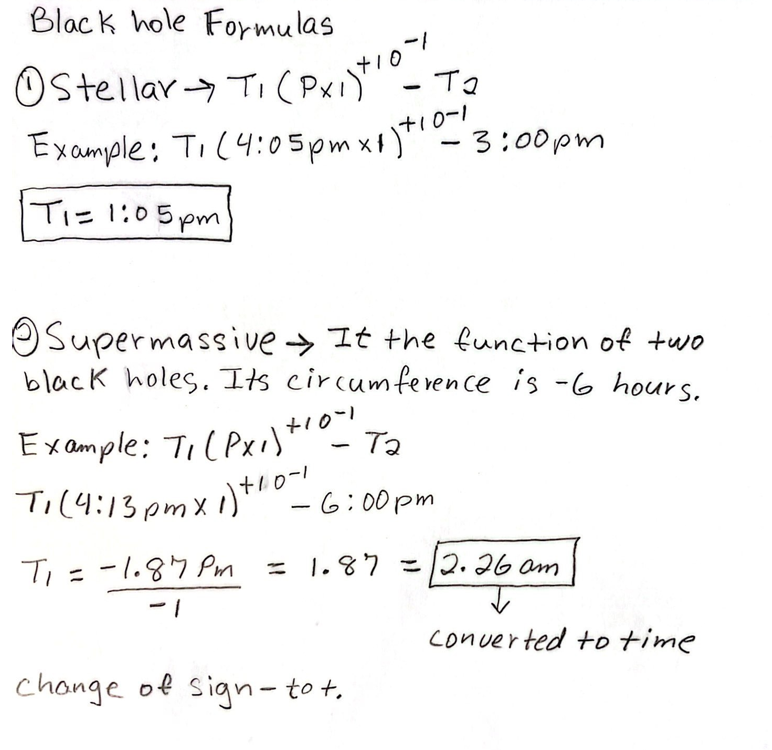 Black hole Formulas
① Stellar → T₁ (Px1)^+10^-1 - T₂
Example: T₁ (4:05pm x1)^+10^-1 - 3:00pm
T₁ = 1:05pm
② Supermassive → It the function of two
black holes. Its circumference is -6 hours.
Example: T₁ (Px1)^+10^-1 - T₂
T₁ (4:13pm x 1)^+10^-1 - 6:00pm
T₁ = -1.87 Pm / -1 = 1.87 = 2.26 am
↓
converted to time
change of sign - to +.